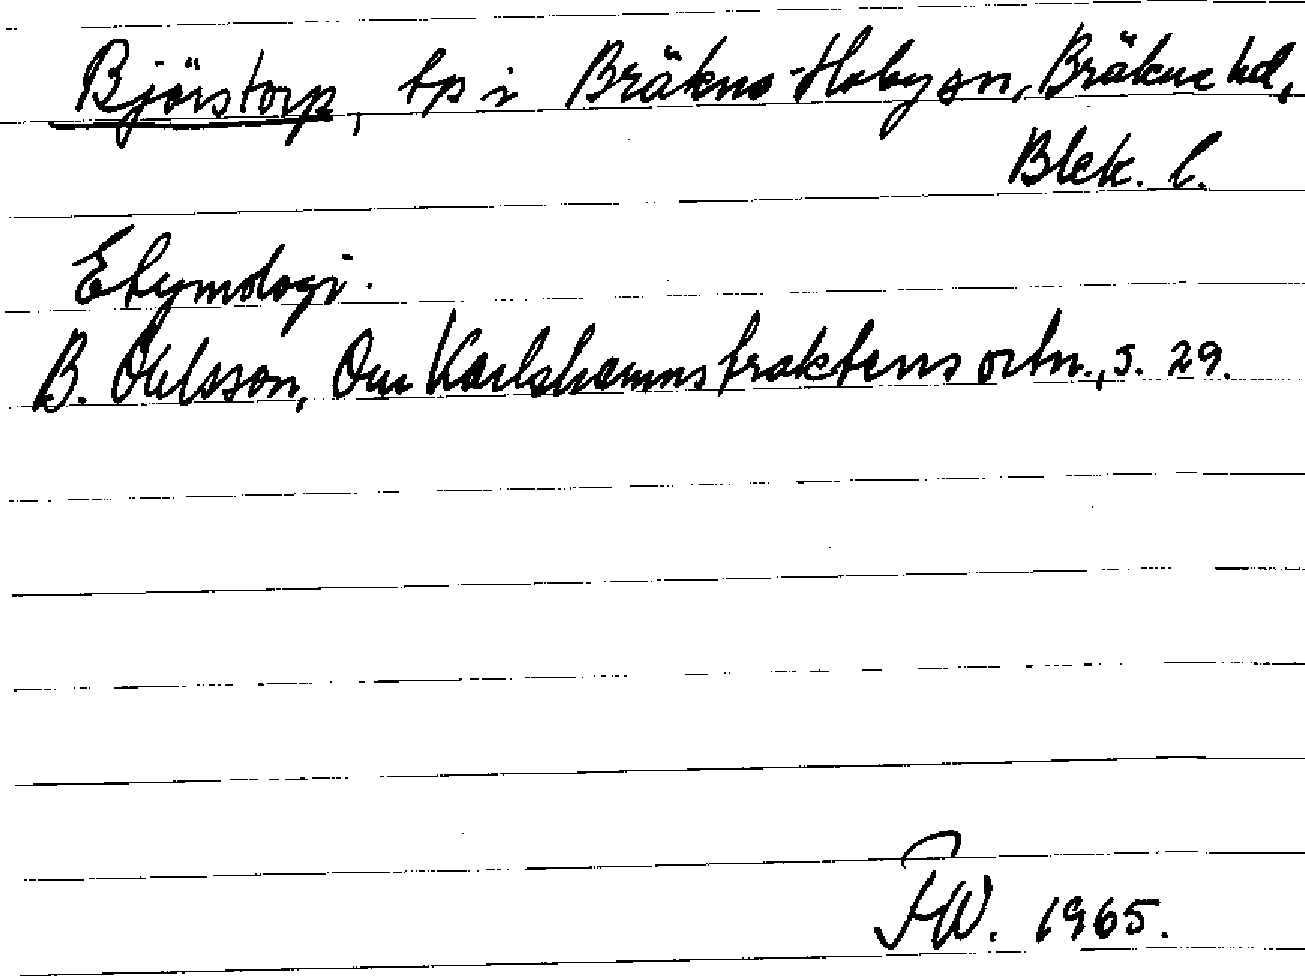 Björstorp, tp i Bräkne-Hoby sn, Bräkne hd,
Blek. l.
Etymologi.
B. Ohlsson, Om Karlshamnstraktens ortn., s. 29.
FW. 1965.